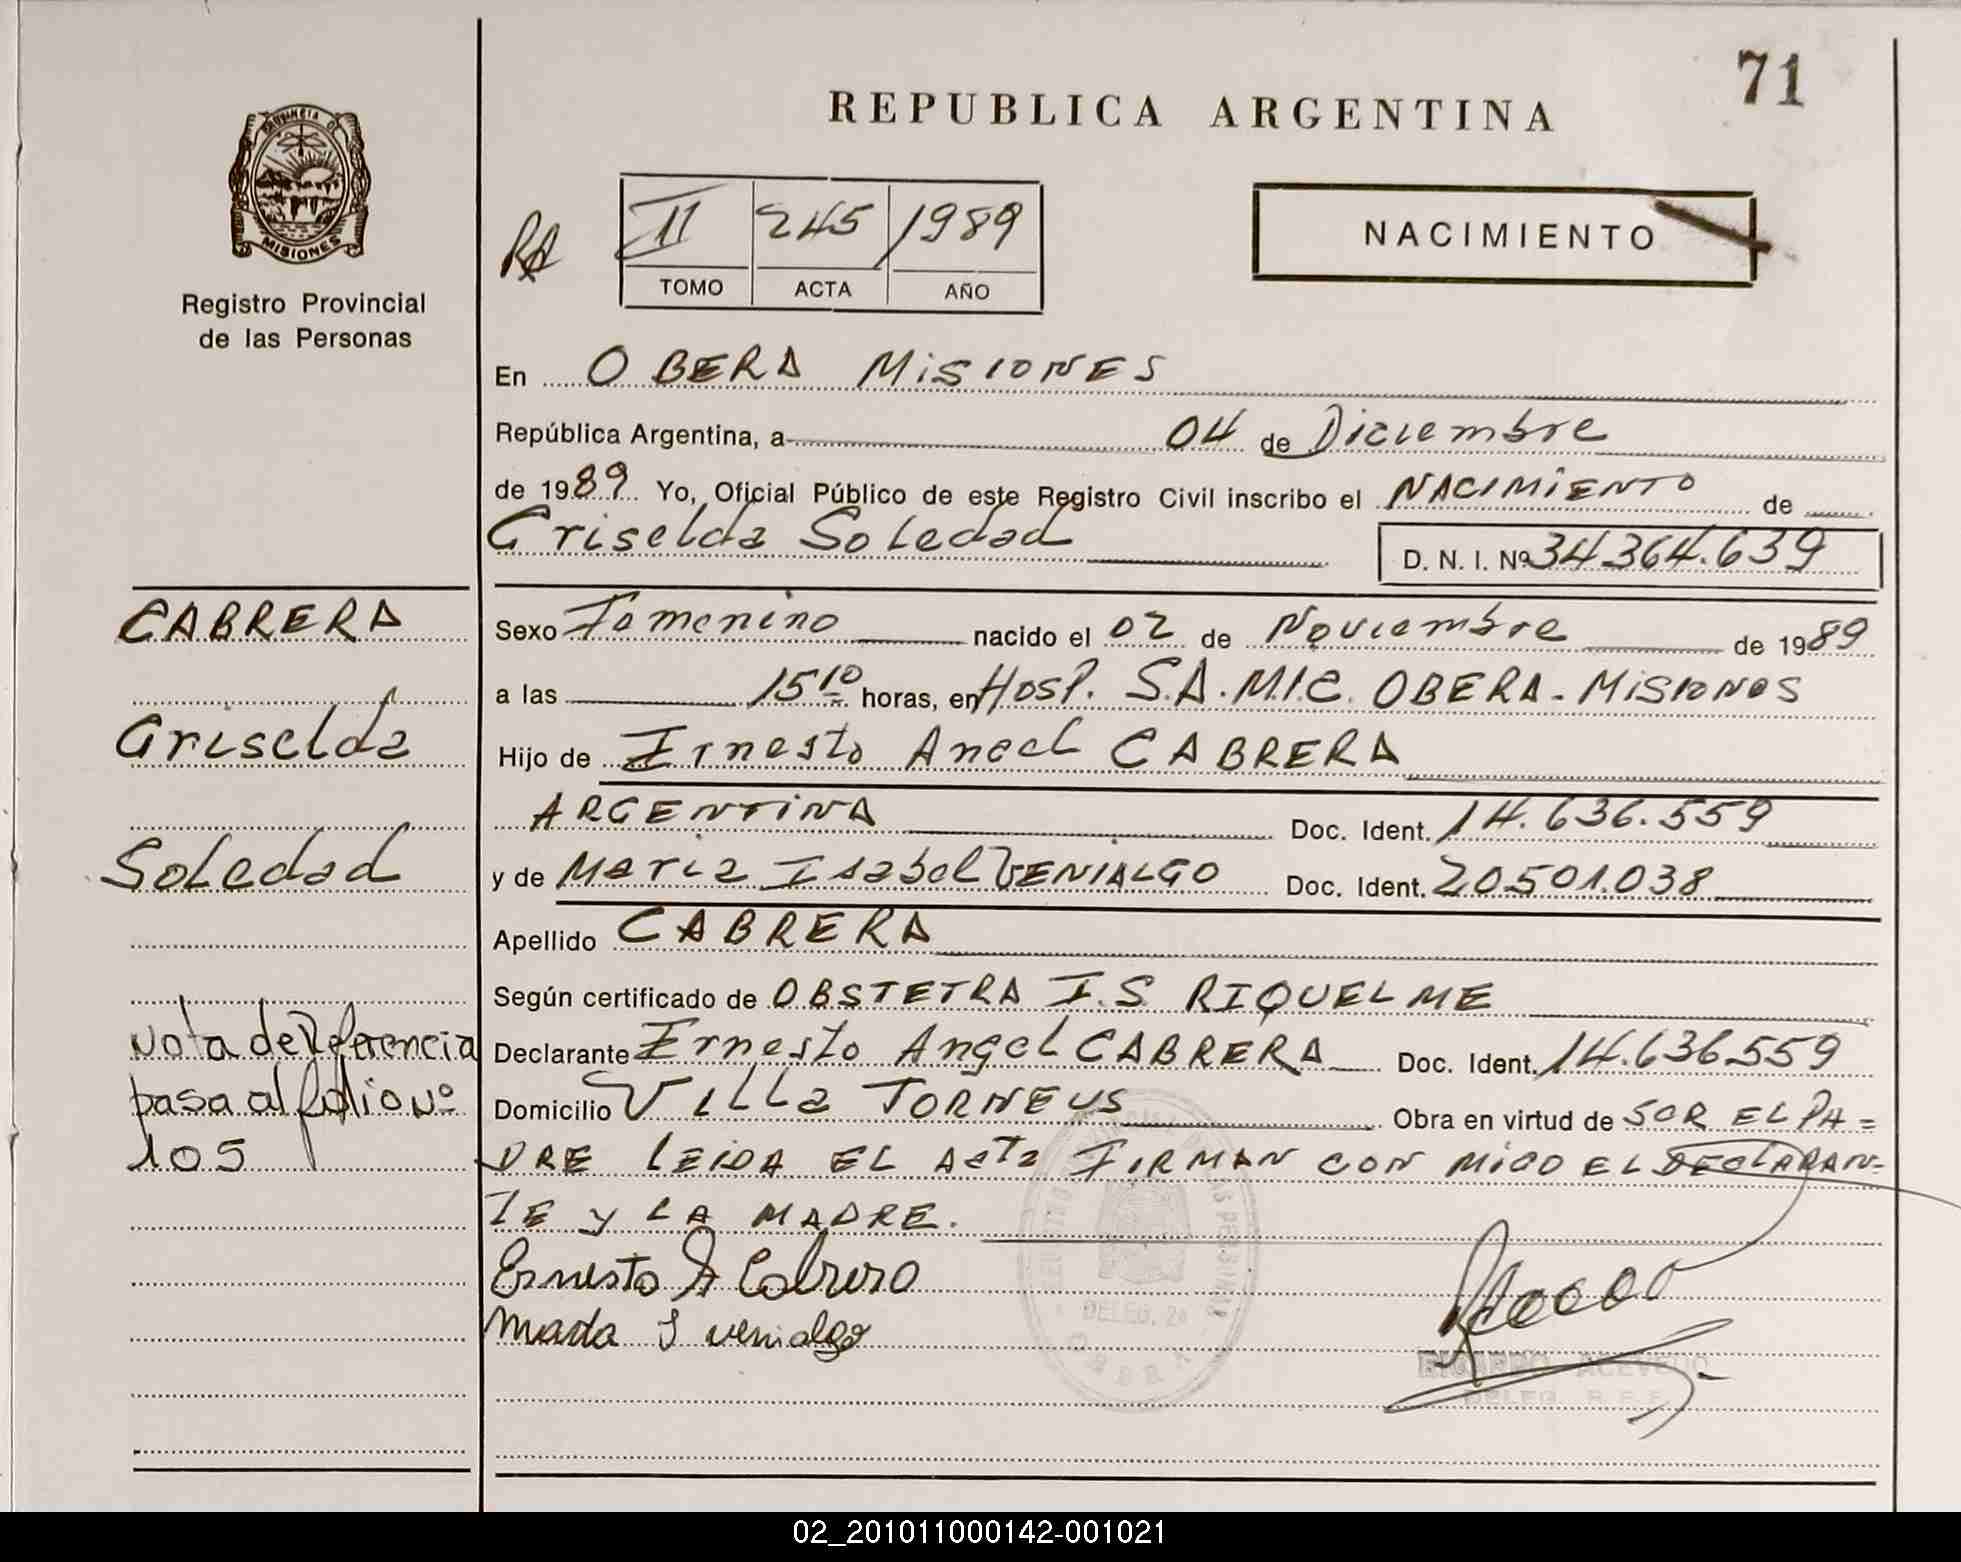 71
REPUBLICA ARGENTINA
PROVINCIA DE
MISIONES
Registro Provincial
de las Personas
RA
II 245 1989
TOMO ACTA AÑO
NACIMIENTO
En OBERA MISIONES
República Argentina, a 04 de Diciembre
de 1989 Yo, Oficial Público de este Registro Civil inscribo el NACIMIENTO de
Griselda Soledad
D. N. I. Nº 34.364.639
CABRERA
Griselda
Soledad
Nota de Referencia
pasa al folio Nº
105
Sexo Femenino nacido el 02 de Noviembre de 1989
a las 15 10 horas, en Hosp. S.A.M.I.C. OBERA - Misiones
Hijo de Ernesto Angel CABRERA
ARGENTINA Doc. Ident. 14.636.559
y de Maria Isabel VENIALGO Doc. Ident. 20.501.038
Apellido CABRERA
Según certificado de OBSTETRA I.S RIQUELME
Declarante Ernesto Angel CABRERA Doc. Ident. 14.636.559
Domicilio Villa TORNEUS Obra en virtud de SER EL PA=
DRE LEIDA EL Acta FIRMAN CON MIGO EL DECLARAN=
TE y LA MADRE.
Ernesto A Cabrera
I venialgo
DELEG. 24
OBERA
RICARDO ACEVEDO
02_201011000142-001021